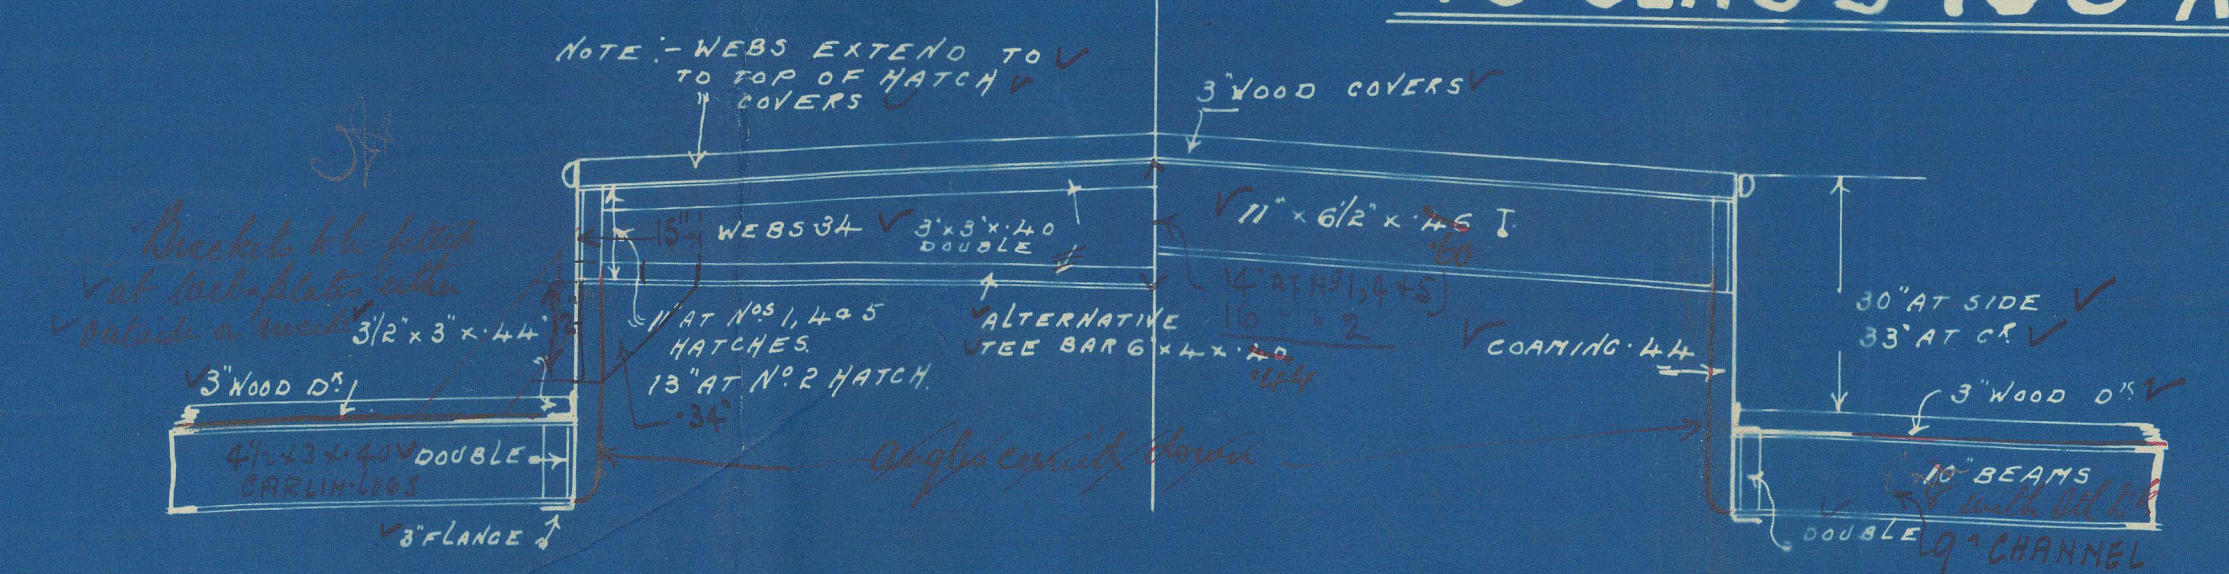 TO CLASS 100 A
NOTE :- WEBS EXTEND TO
TO TOP OF HATCH
COVERS
3" WOOD COVERS
Brackets to be fitted
at web plates either
outside or inside
15"
WEBS 34
3" x 3" x .40
DOUBLE
11" x 6 1/2" x .46 I
.60
14" AT Nº 1, 4 + 5
16 " " 2
3 1/2" x 3" x .44
12"
11" AT Nos 1, 4 & 5
HATCHES.
13" AT Nº 2 HATCH.
.34"
ALTERNATIVE
TEE BAR 6" x 4 x .40
.44
COAMING .44
30" AT SIDE
33" AT CR
3" WOOD DK
3" WOOD DK
4 1/2 x 3 x .40
CARLIN LUGS
DOUBLE
angles carried down
10" BEAMS
DOUBLE
9" CHANNEL
3" FLANGE